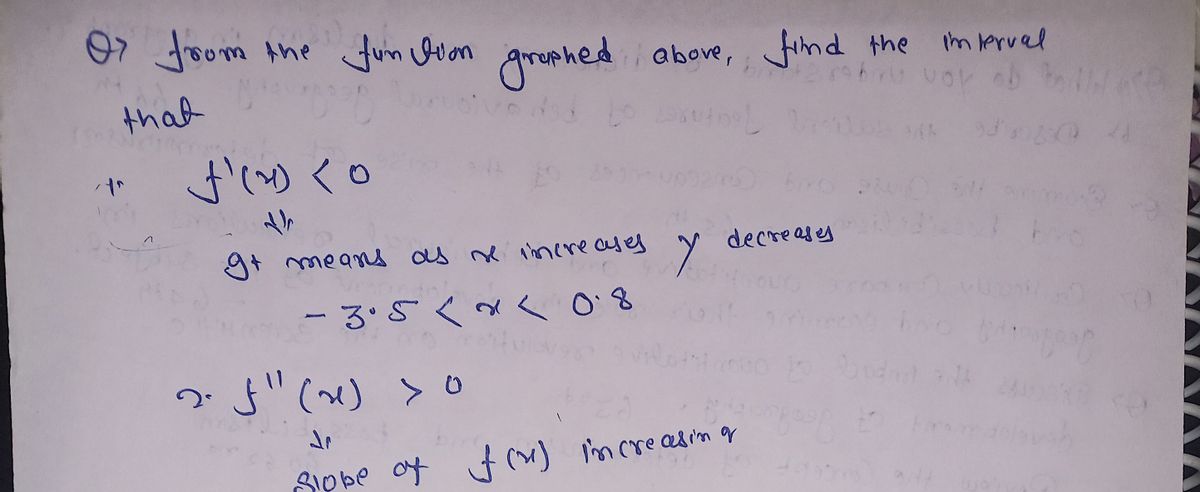 Q> from the function graphed above, find the interval
that
1. f'(x) < 0
⇓
It means as x increases y decreases
- 3.5 < x < 0.8
2. f''(x) > 0
⇓
slope of f(x) increasing